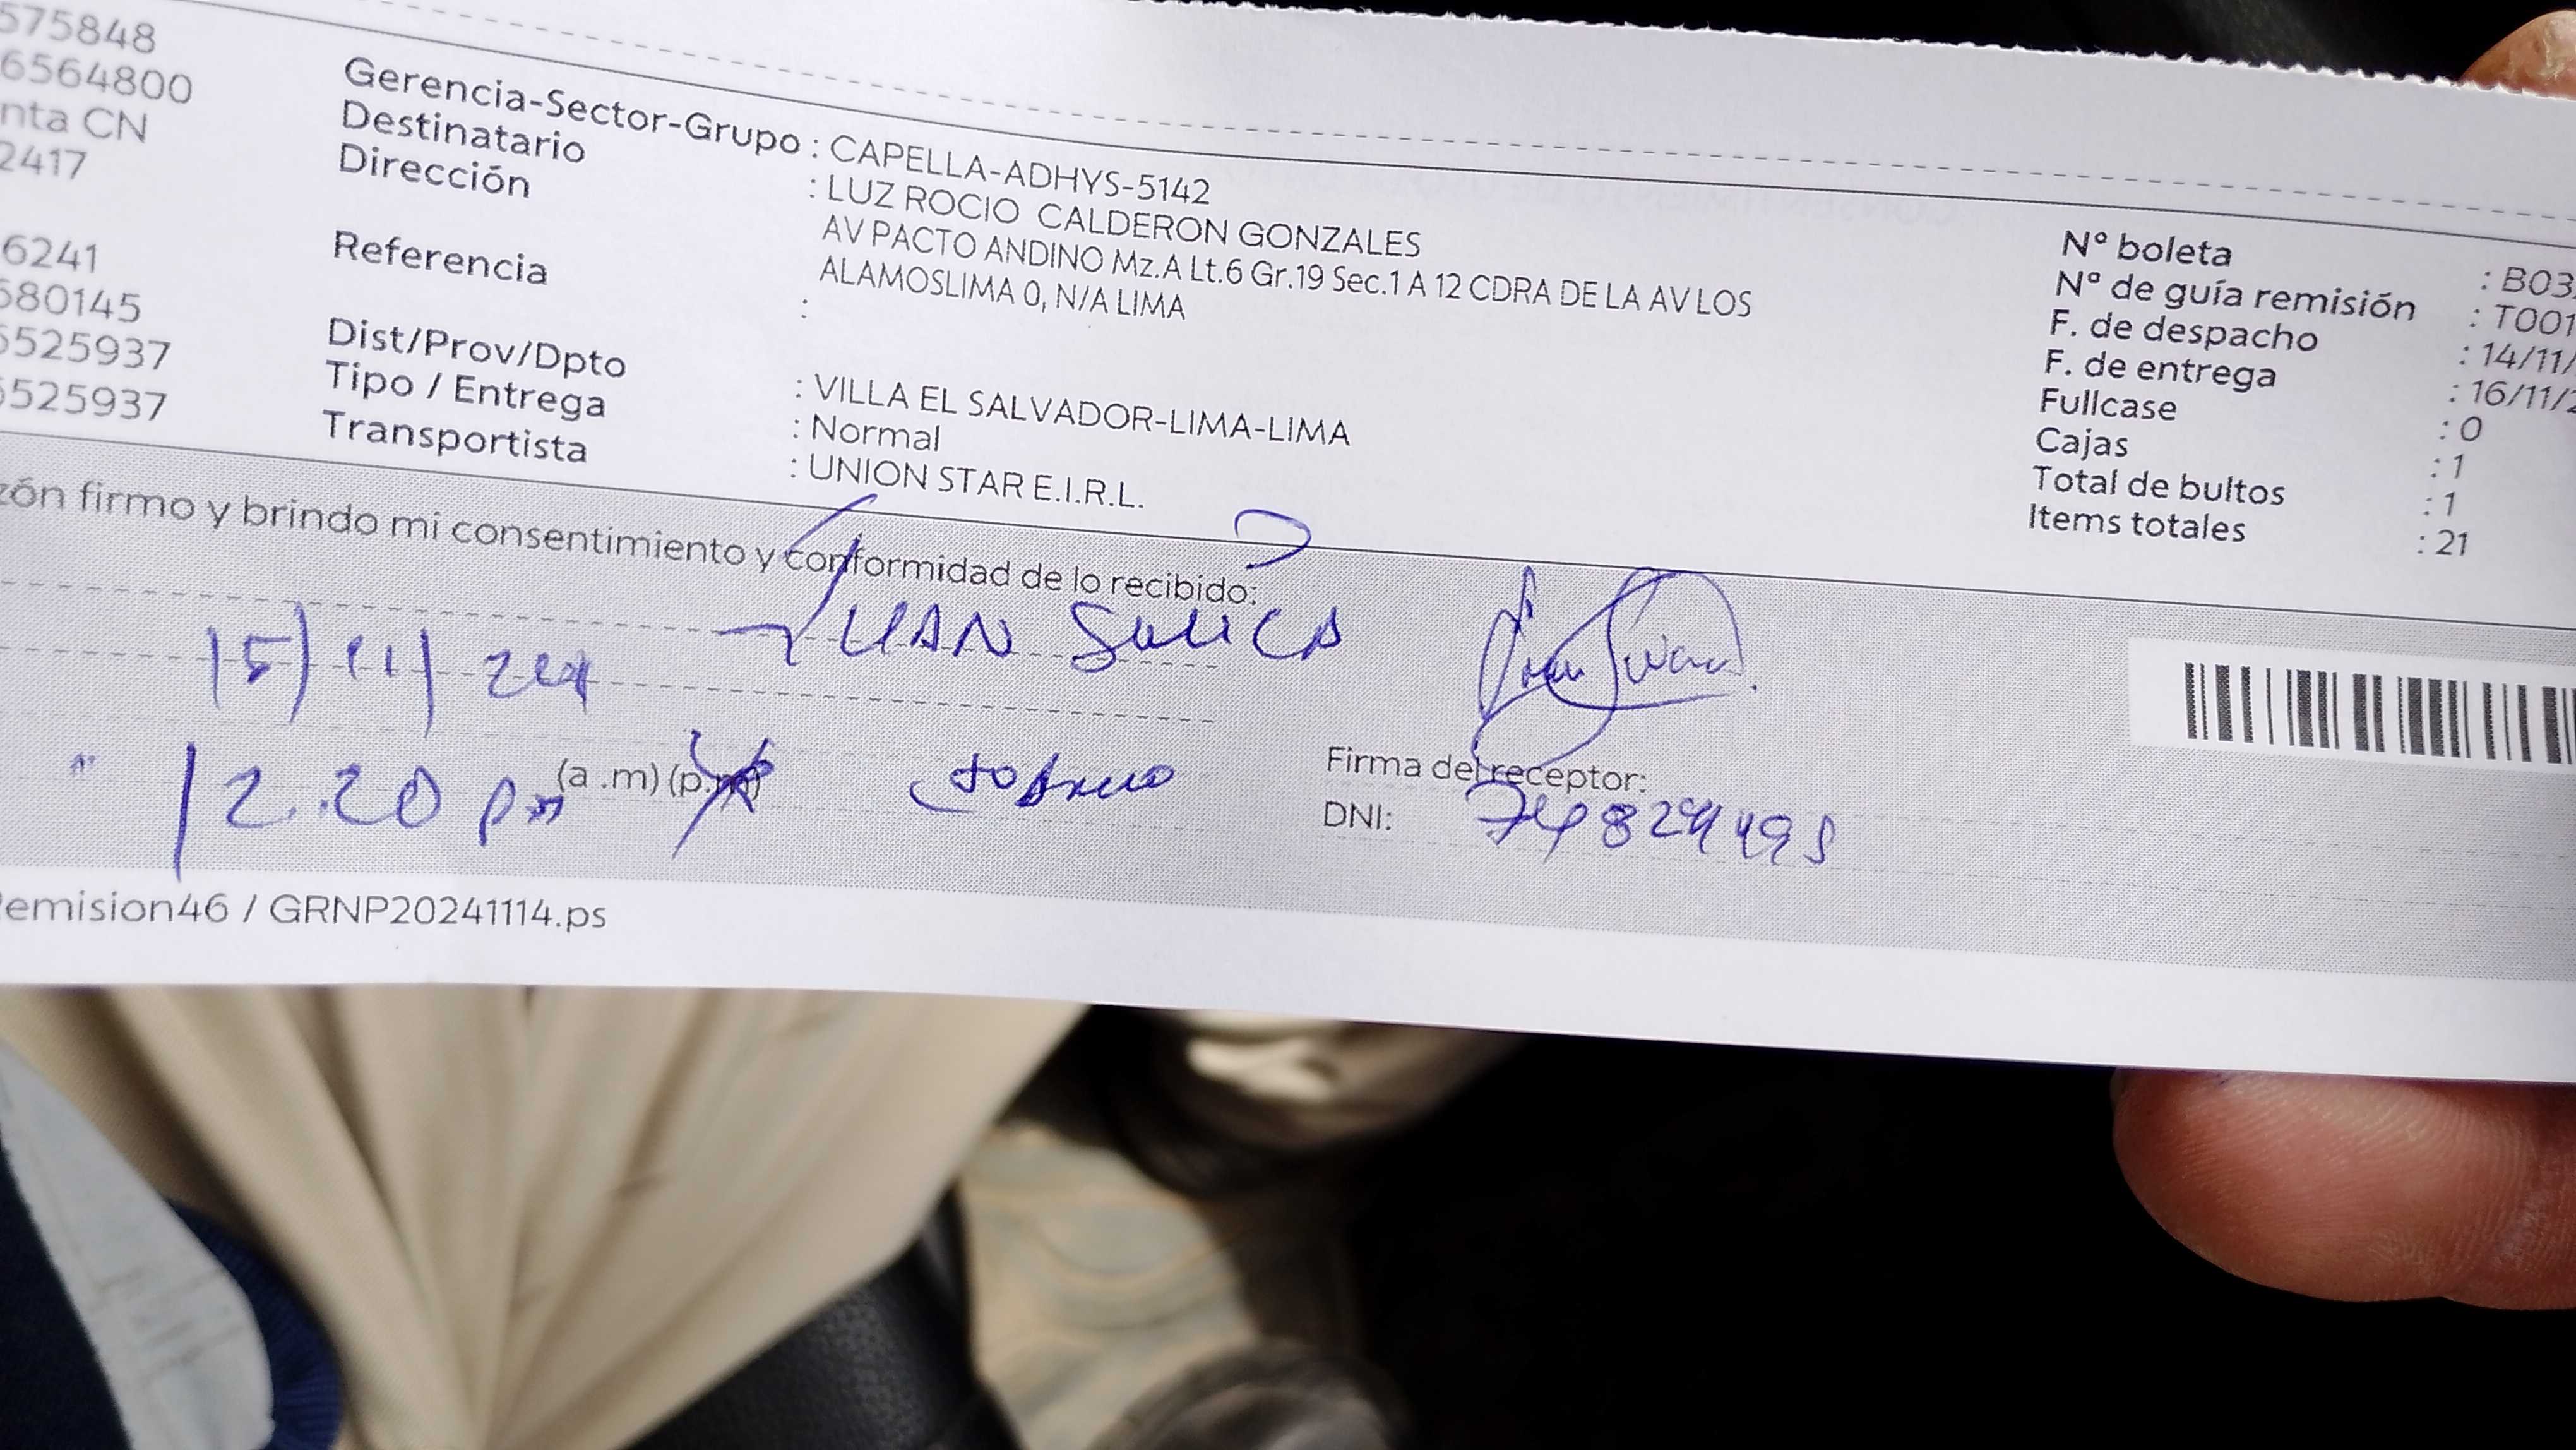 575848
6564800
nta CN
2417
6241
580145
5525937
5525937
Gerencia-Sector-Grupo : CAPELLA-ADHYS-5142
Destinatario : LUZ ROCIO CALDERON GONZALES
Dirección AV PACTO ANDINO Mz.A Lt.6 Gr.19 Sec.1 A 12 CDRA DE LA AV LOS
ALAMOSLIMA 0, N/A LIMA
Referencia :
Dist/Prov/Dpto : VILLA EL SALVADOR-LIMA-LIMA
Tipo / Entrega : Normal
Transportista : UNION STAR E.I.R.L.
Nº boleta : B03
Nº de guía remisión : T001
F. de despacho : 14/11/
F. de entrega : 16/11/2
Fullcase : 0
Cajas : 1
Total de bultos : 1
Items totales : 21
zón firmo y brindo mi consentimiento y conformidad de lo recibido:
15/11/ JUAN
12.20 pm (a .m) (p.m)
Firma del receptor:
DNI:
emision46 / GRNP20241114.ps